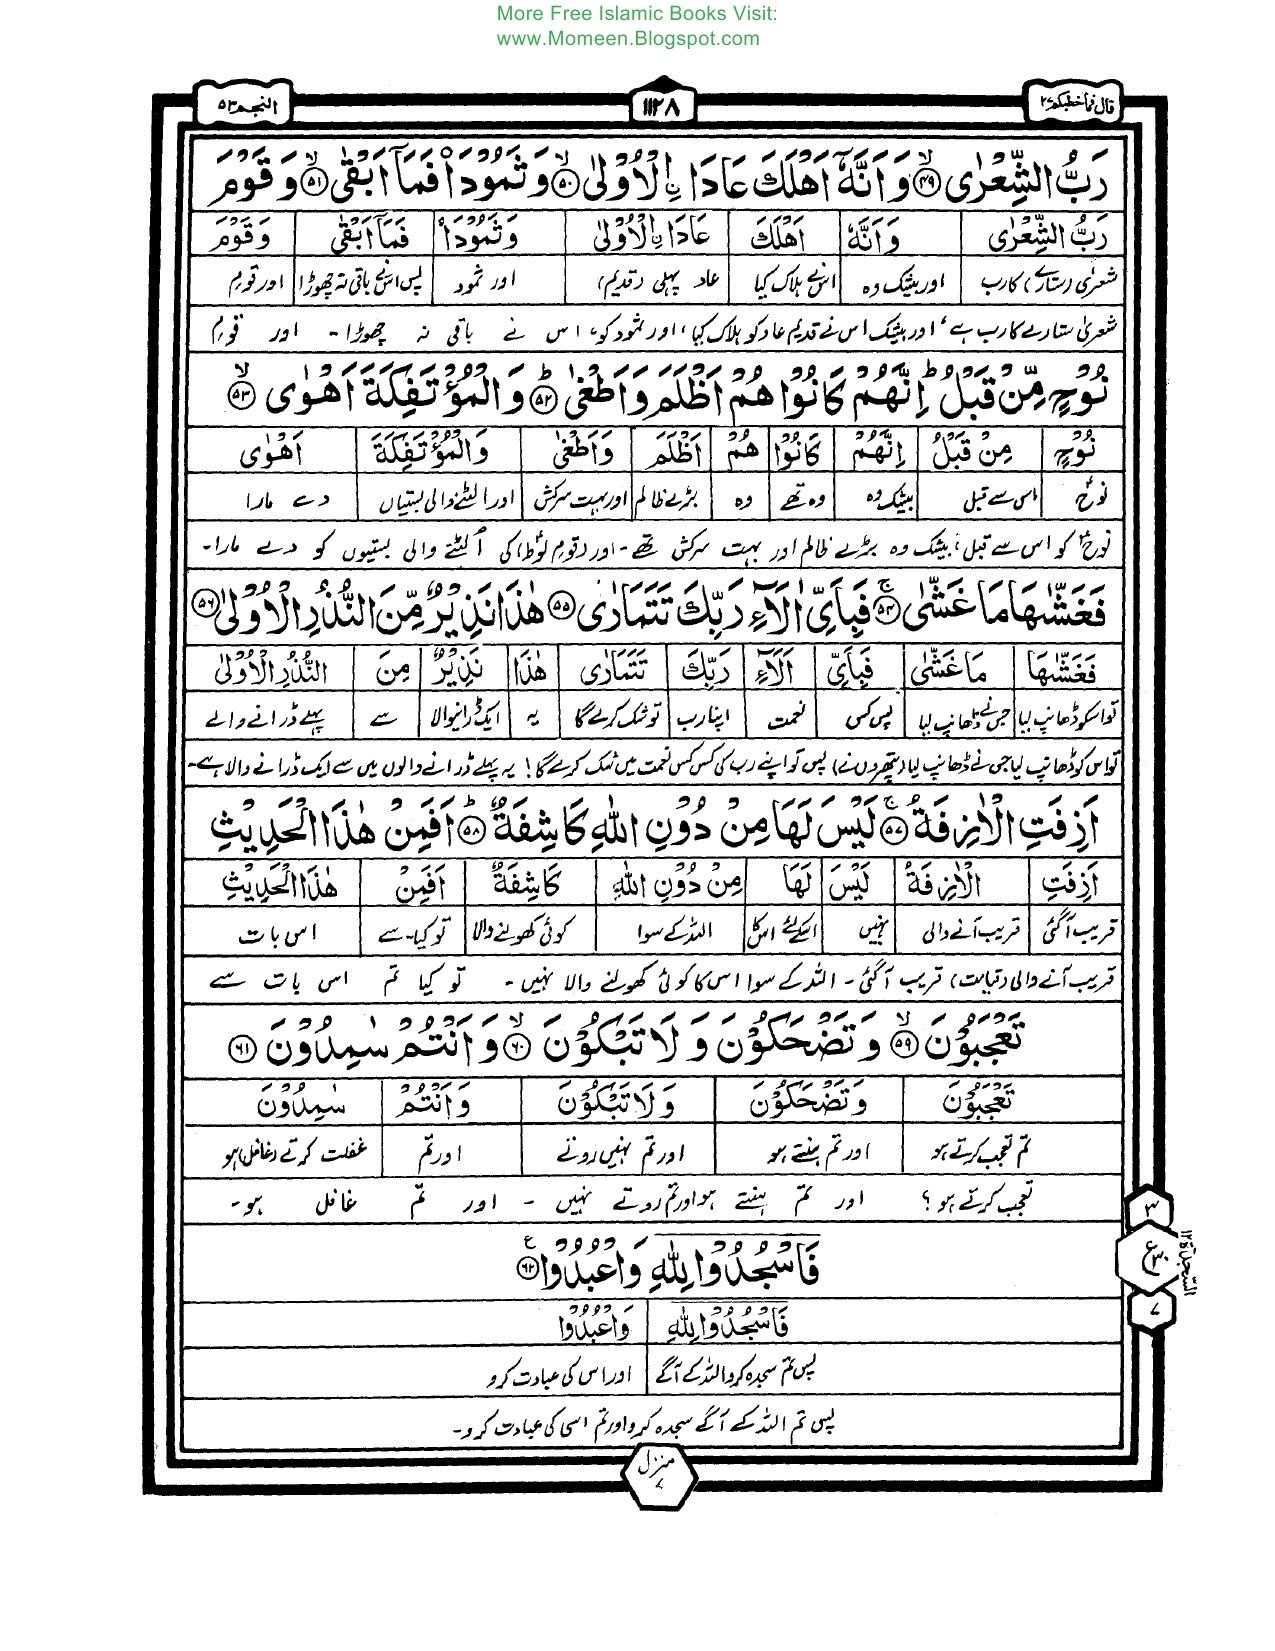 More Free Islamic Books Visit:
www.Momeen.Blogspot.com
قال فما خطبكم ٢٧
١١٢٨
النجم ٥٣
رَبُّ الشِّعْرٰى ﴿٤٩﴾ وَاَنَّهٗۤ اَهْلَكَ عَادَا ۨالْاُوْلٰى ﴿٥٠﴾ وَثَمُوْدَا۟ فَمَاۤ اَبْقٰى ﴿٥١﴾ وَقَوْمَ
رَبُّ الشِّعْرٰى وَاَنَّهٗ اَهْلَكَ عَادَا ۨالْاُوْلٰى وَثَمُوْدَا۟ فَمَاۤ اَبْقٰى وَقَوْمَ
شعریٰ (ستارے) کا رب اور بیشک وہ اس نے ہلاک کیا عاد پہلی (قدیم) اور ثمود پس اس نے باقی نہ چھوڑا اور قومِ
شعریٰ ستارے کا رب ہے، اور بیشک اس نے قدیم عاد کو ہلاک کیا، اور ثمود کو، اس نے باقی نہ چھوڑا۔ اور قومِ
نُوْحٍ مِّنْ قَبْلُ ؕ اِنَّهُمْ كَانُوْا هُمْ اَظْلَمَ وَاَطْغٰى ﴿٥٢﴾ وَالْمُؤْتَفِكَةَ اَهْوٰى ﴿٥٣﴾
نُوْحٍ مِنْ قَبْلُ اِنَّهُمْ كَانُوْا هُمْ اَظْلَمَ وَاَطْغٰى وَالْمُؤْتَفِكَةَ اَهْوٰى
نوحؑ اس سے قبل بیشک وہ وہ تھے وہ بڑے ظالم اور بہت سرکش اور الٹنے والی بستیاں دے مارا
نوحؑ کو اس سے قبل، بیشک وہ بڑے ظالم اور بہت سرکش تھے۔ اور (قومِ لوطؑ) کی الٹنے والی بستیوں کو دے مارا۔
فَغَشّٰىهَا مَا غَشّٰى ﴿٥٤﴾ فَبِاَىِّ اٰلَآءِ رَبِّكَ تَتَمَارٰى ﴿٥٥﴾ هٰذَا نَذِيْرٌ مِّنَ النُّذُرِ الْاُوْلٰى ﴿٥٦﴾
فَغَشّٰىهَا مَا غَشّٰى فَبِاَىِّ اٰلَآءِ رَبِّكَ تَتَمَارٰى هٰذَا نَذِيْرٌ مِنَ النُّذُرِ الْاُوْلٰى
تو اسکو ڈھانپ لیا جس نے ڈھانپ لیا پس کس نعمت اپنا رب تو شک کرے گا یہ ایک ڈرانیوالا سے پہلے ڈرانے والے
تو اس کو ڈھانپ لیا جس نے ڈھانپ لیا (پتھروں نے) پس تو اپنے رب کی کس کس نعمت میں شک کرے گا! یہ پہلے ڈرانے والوں میں سے ایک ڈرانے والا ہے۔
اَزِفَتِ الْاٰزِفَةُ ﴿٥٧﴾ لَيْسَ لَهَا مِنْ دُوْنِ اللّٰهِ كَاشِفَةٌ ﴿٥٨﴾ اَفَمِنْ هٰذَا الْحَدِيْثِ
اَزِفَتِ الْاٰزِفَةُ لَيْسَ لَهَا مِنْ دُوْنِ اللّٰهِ كَاشِفَةٌ اَفَمِنْ هٰذَا الْحَدِيْثِ
قریب آگئی قریب آنے والی نہیں اسکے لئے اس کا اللہ کے سوا کوئی کھولنے والا تو کیا۔ سے اس بات
قریب آنے والی (قیامت) قریب آگئی۔ اللہ کے سوا اس کا کوئی کھولنے والا نہیں۔ تو کیا تم اس بات سے
تَعْجَبُوْنَ ﴿٥٩﴾ وَتَضْحَكُوْنَ وَلَا تَبْكُوْنَ ﴿٦٠﴾ وَاَنْتُمْ سٰمِدُوْنَ ﴿٦١﴾
تَعْجَبُوْنَ وَتَضْحَكُوْنَ وَلَا تَبْكُوْنَ وَاَنْتُمْ سٰمِدُوْنَ
تم تعجب کرتے ہو اور تم ہنستے ہو اور تم نہیں روتے اور تم غفلت کرتے (غافل) ہو
تعجب کرتے ہو؟ اور تم ہنستے ہو اور تم روتے نہیں۔ اور تم غافل ہو۔
فَاسْجُدُوْا لِلّٰهِ وَاعْبُدُوْا ﴿٦٢﴾
فَاسْجُدُوْا لِلّٰهِ وَاعْبُدُوْا
پس تم سجدہ کرو اللہ کے آگے اور اس کی عبادت کرو
پس تم اللہ کے آگے سجدہ کرو اور تم اسی کی عبادت کرو۔
٣
ع ٣٠
٧
السجدة ١٢
منزل ٧